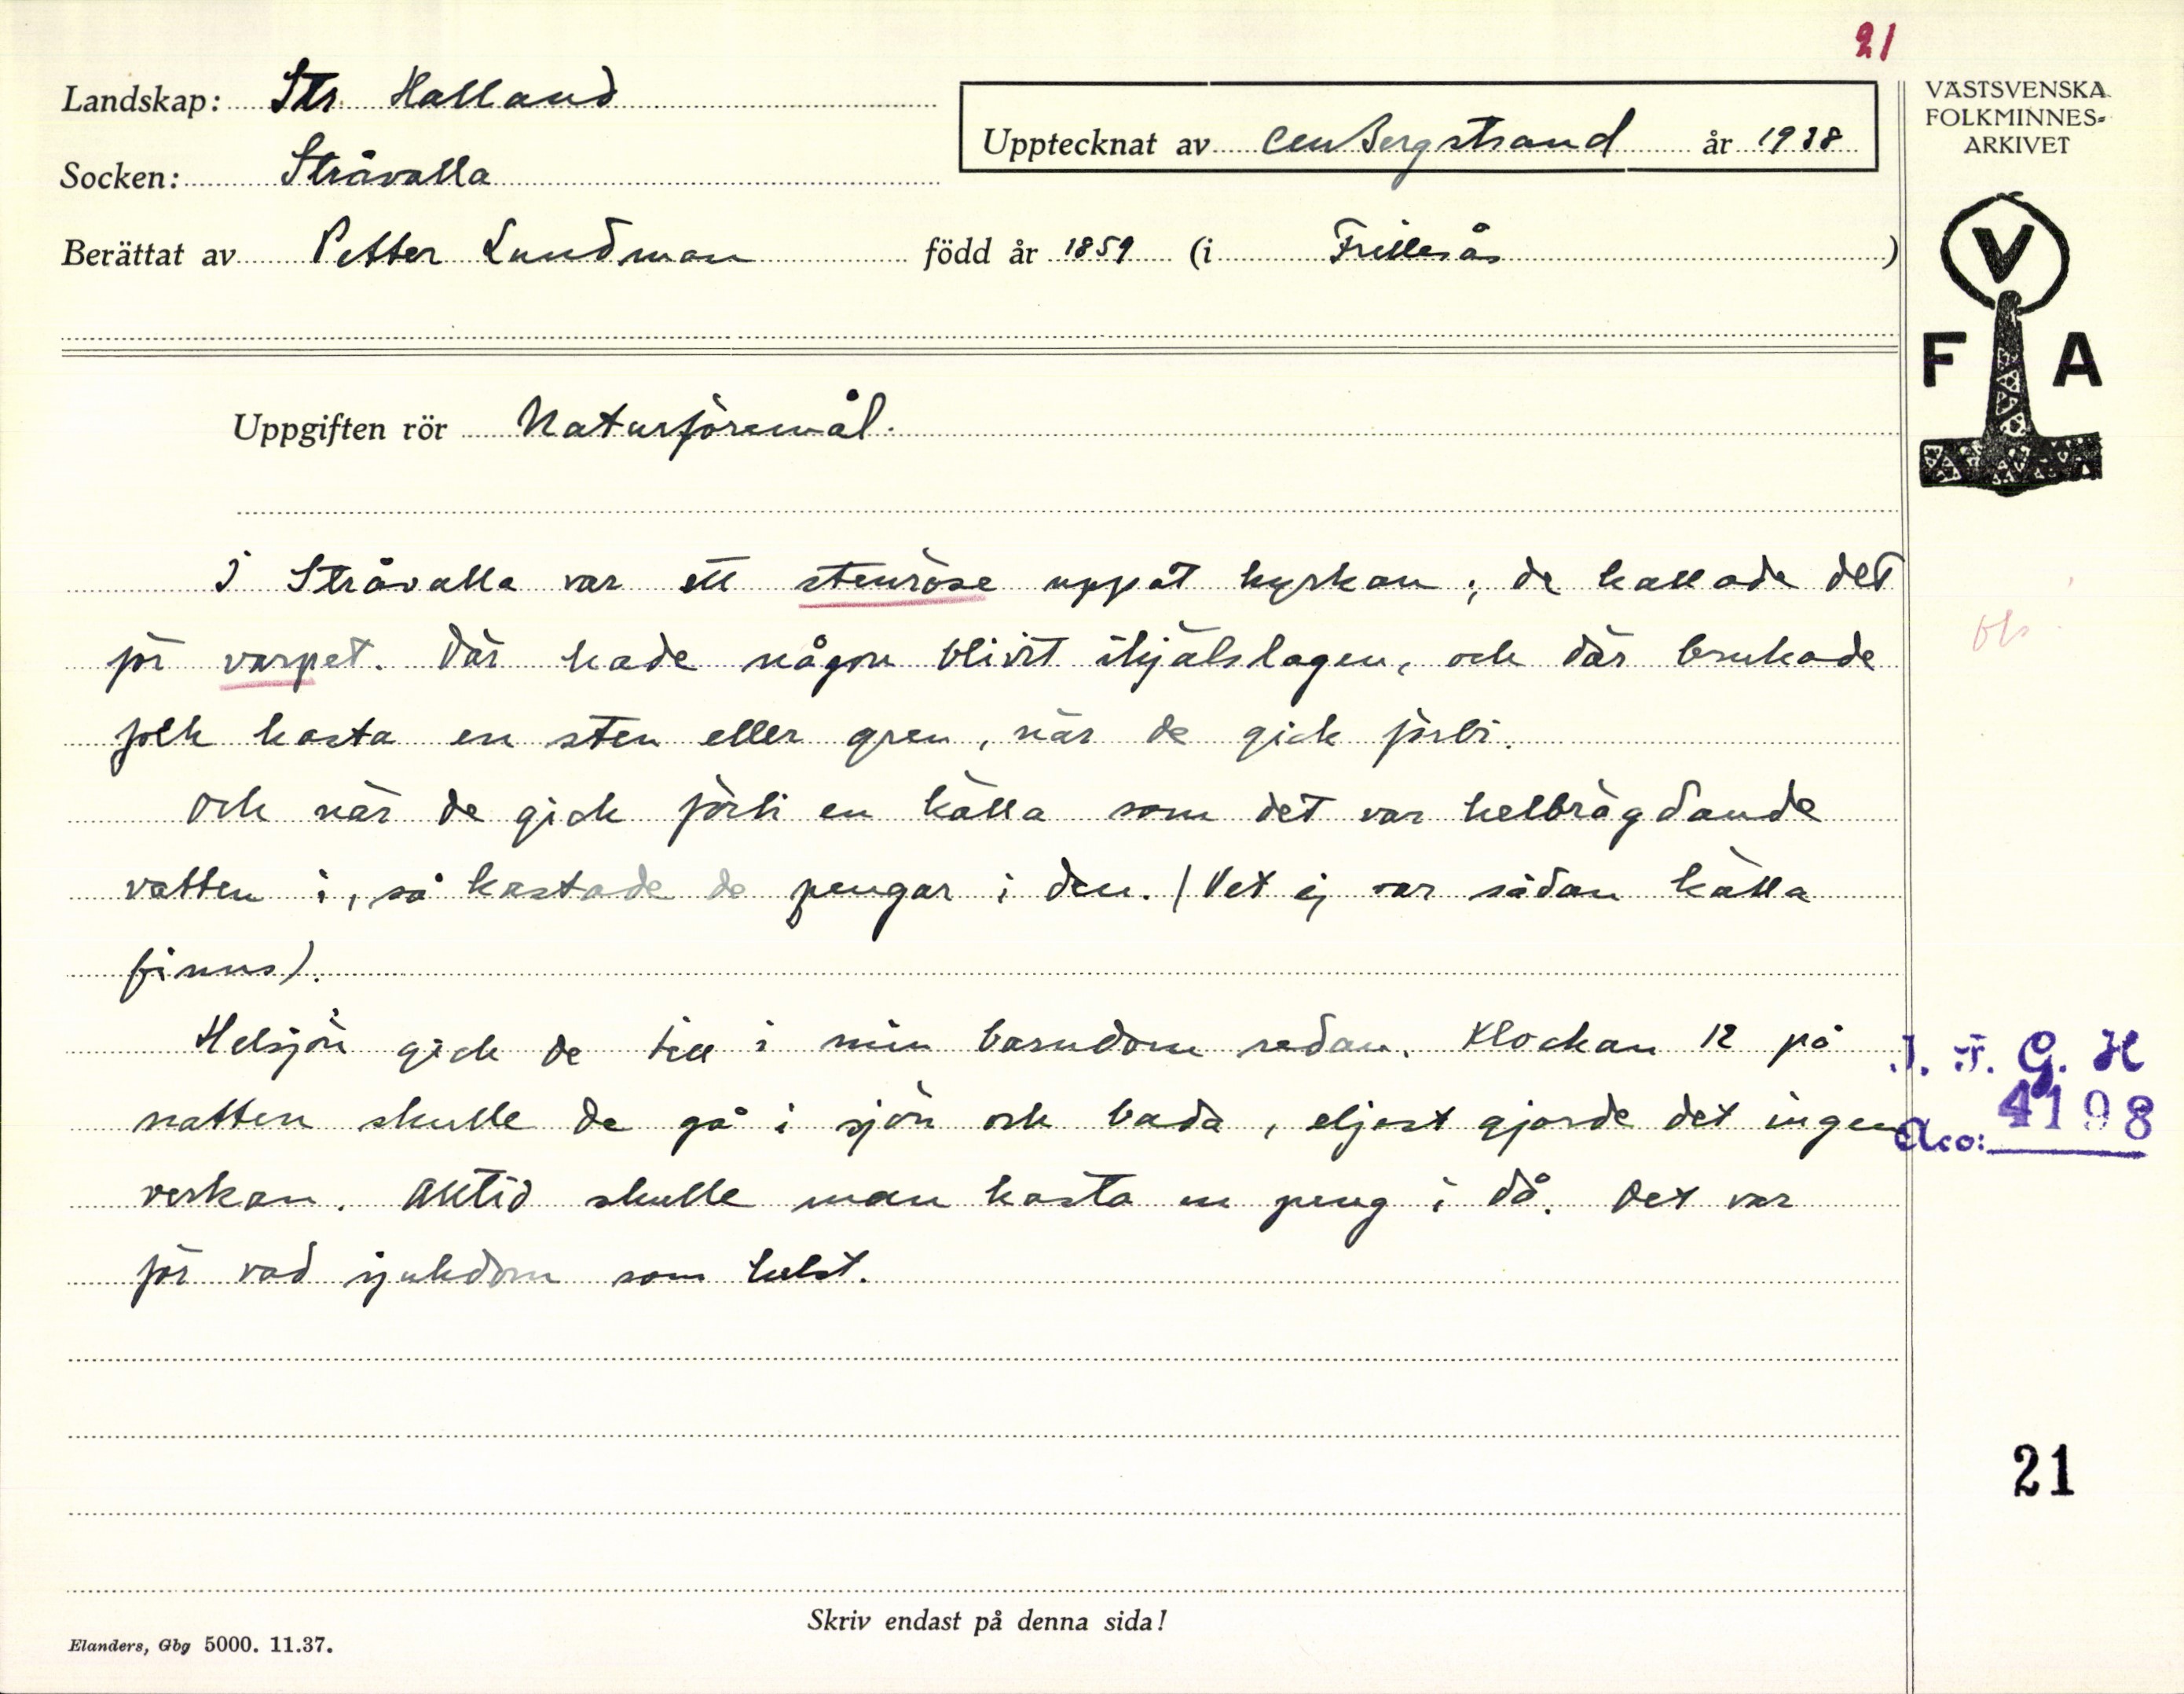 21
Landskap: Str. Halland
Upptecknat av CMBergstrand år 1938
VÄSTSVENSKA
FOLKMINNES-
ARKIVET
Socken: Stråvalla
Berättat av Petter Lundman född år 1859 (i Frillesås)
V
F A
Uppgiften rör Naturföremål.
I Stråvalla var ett stenröse uppåt kyrkan; de kallade det
för varpet. Där hade någon blivit ihjälslagen, och där brukade
folk kasta en sten eller gren, när de gick förbi.
Och när de gick förbi en källa som det var helbrägdande
vatten i, så kastade de pengar i den. (Vet ej var sådan källa
finns).
Helsjön gick de till i min barndom redan. Klockan 12 på
natten skulle de gå i sjön och bada, eljest gjorde det ingen
verkan. Alltid skulle man kasta en peng i då. Det var
för vad sjukdom som helst.
I. F. G. H
Acc: 4198
21
Skriv endast på denna sida!
Elanders, Gbg 5000. 11.37.